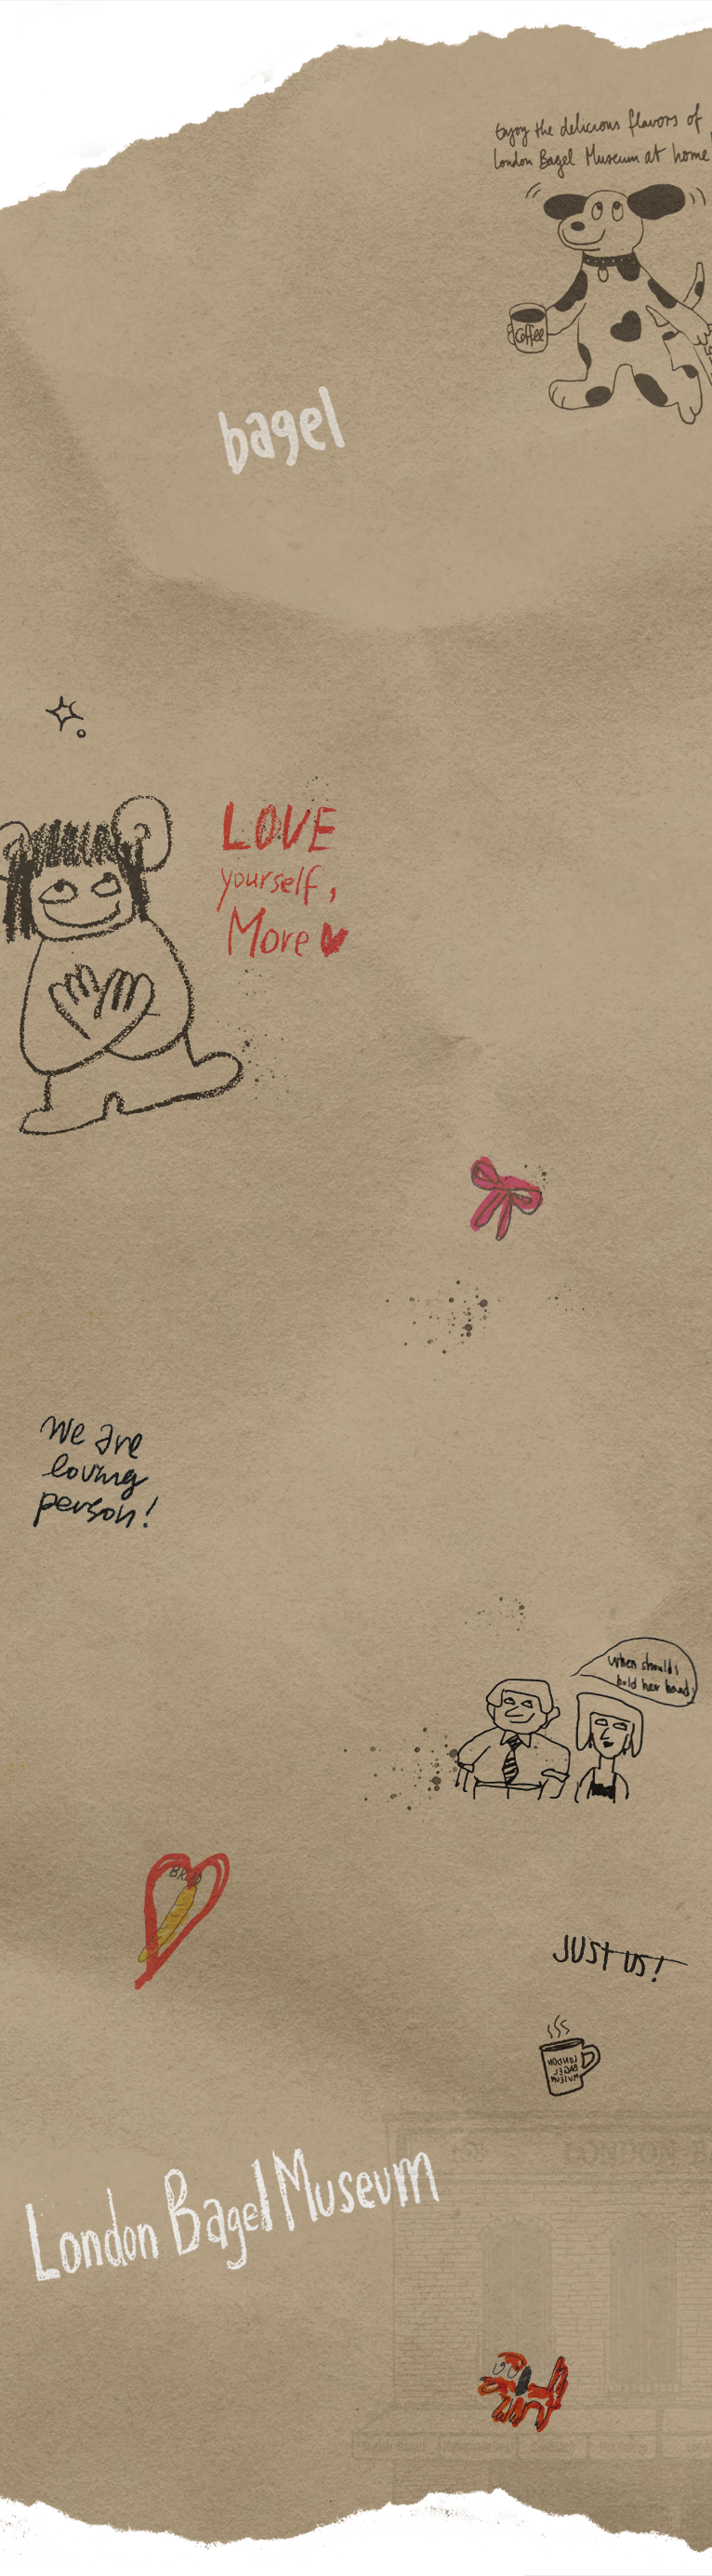 Enjoy the delicious flavors of
London Bagel Museum at home
Coffee
bagel
LOVE
yourself,
More
We are
loving
person!
When should i
hold her hand
BREAD
JUST US!
LONDON
BAGEL
MUSEUM
LONDON BA
London Bagel Museum